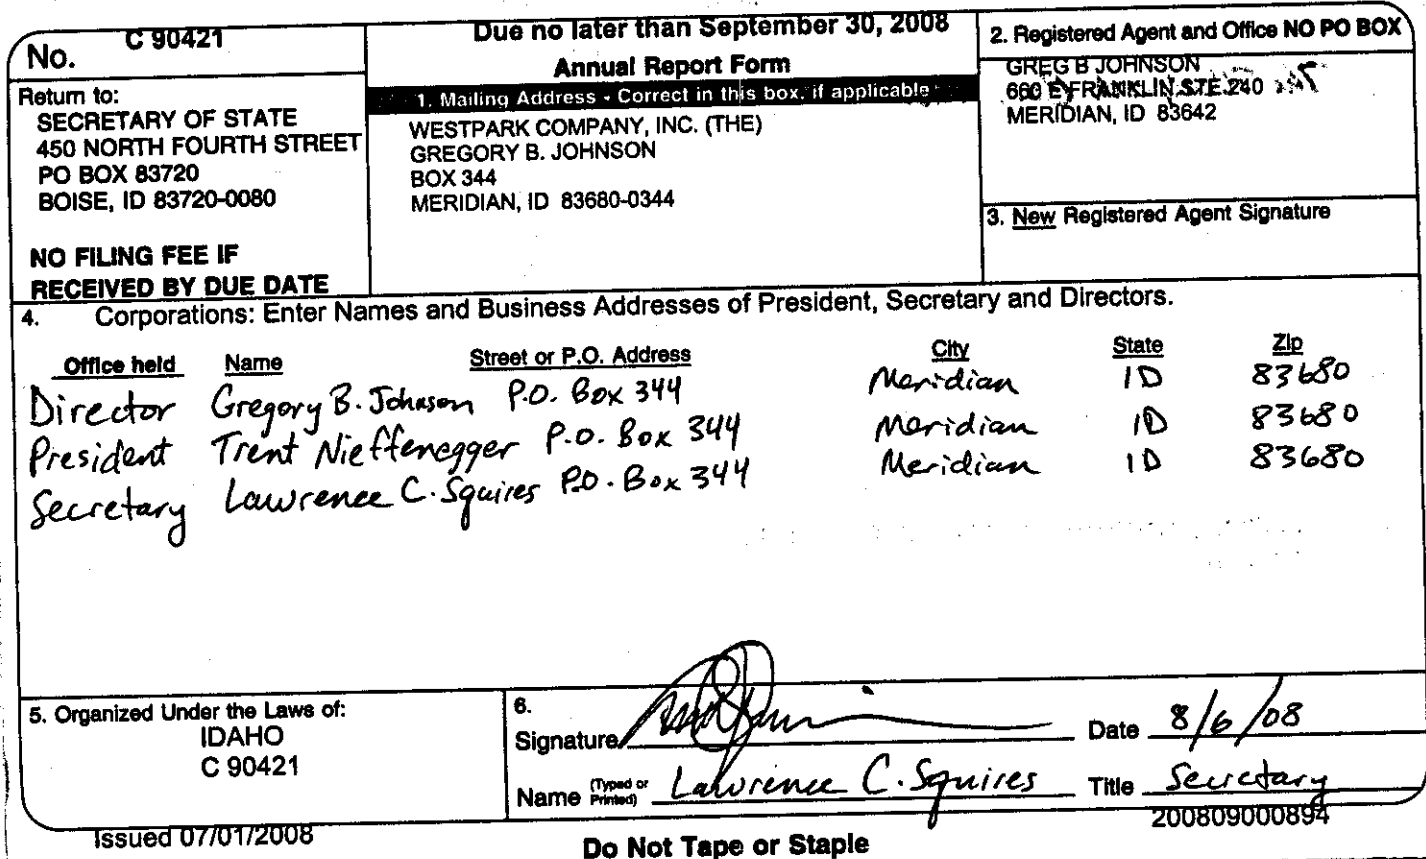 No. C 90421
Return to:
SECRETARY OF STATE
450 NORTH FOURTH STREET
PO BOX 83720
BOISE, ID 83720-0080
NO FILING FEE IF
RECEIVED BY DUE DATE
Due no later than September 30, 2008
Annual Report Form
1. Mailing Address - Correct in this box, if applicable
WESTPARK COMPANY, INC. (THE)
GREGORY B. JOHNSON
BOX 344
MERIDIAN, ID 83680-0344
2. Registered Agent and Office NO PO BOX
GREG B JOHNSON
660 E FRANKLIN STE 240
MERIDIAN, ID 83642
3. New Registered Agent Signature
4. Corporations: Enter Names and Business Addresses of President, Secretary and Directors.
Office held Name Street or P.O. Address City State Zip
Director Gregory B. Johnson P.O. Box 344 Meridian ID 83680
President Trent Nieffenegger P.O. Box 344 Meridian ID 83680
Secretary Lawrence C. Squires P.O. Box 344 Meridian ID 83680
5. Organized Under the Laws of:
IDAHO
C 90421
6.
Signature Date 8/6/08
Name (Typed or Printed) Lawrence C. Squires Title Secretary
Issued 07/01/2008
Do Not Tape or Staple
200809000894